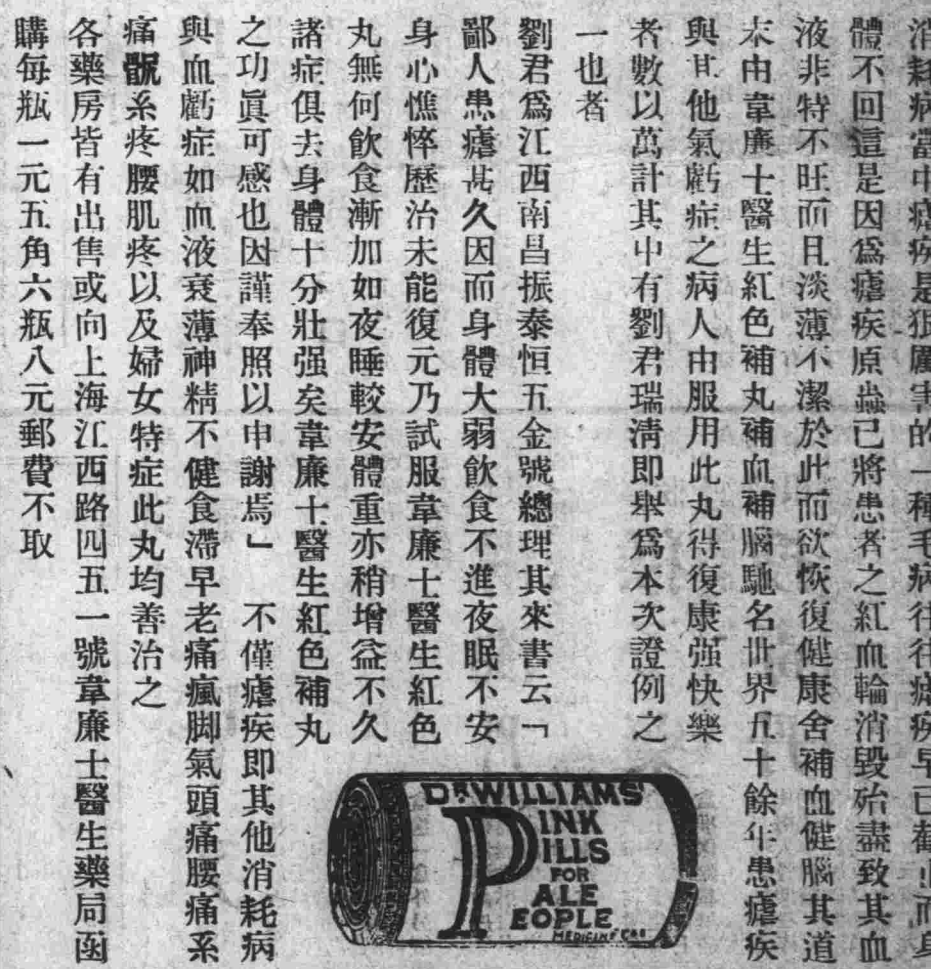 消耗病當中瘧疾是狠厲害的一種毛病往往瘧疾早已截止而身
體不回這是因爲瘧疾原蟲已將患者之紅血輪消毀殆盡致其血
液非特不旺而且淡薄不潔於此而欲恢復健康舍補血健腦其道
末由韋廉士醫生紅色補丸補血補腦馳名世界五十餘年患瘧疾
與其他氣虧症之病人由服用此丸得復康强快樂
者數以萬計其中有劉君瑞清即舉爲本次證例之
一也者
劉君爲江西南昌振泰恒五金號總理其來書云「
鄙人患瘧甚久因而身體大弱飲食不進夜眠不安
身心憔悴歷治未能復元乃試服韋廉士醫生紅色
丸無何飲食漸加如夜睡較安體重亦稍增益不久
諸症俱去身體十分壯强矣韋廉士醫生紅色補丸
之功眞可感也因謹奉照以申謝焉」 不僅瘧疾即其他消耗病
與血虧症如血液衰薄神精不健食滯早老痛瘋脚氣頭痛腰痛系
痛髖系疼腰肌疼以及婦女特症此丸均善治之
各藥房皆有出售或向上海江西路四五一號韋廉士醫生藥局函
購每瓶一元五角六瓶八元郵費不取
DR WILLIAMS'
PINK
PILLS
FOR
PALE
PEOPLE
MEDICINE